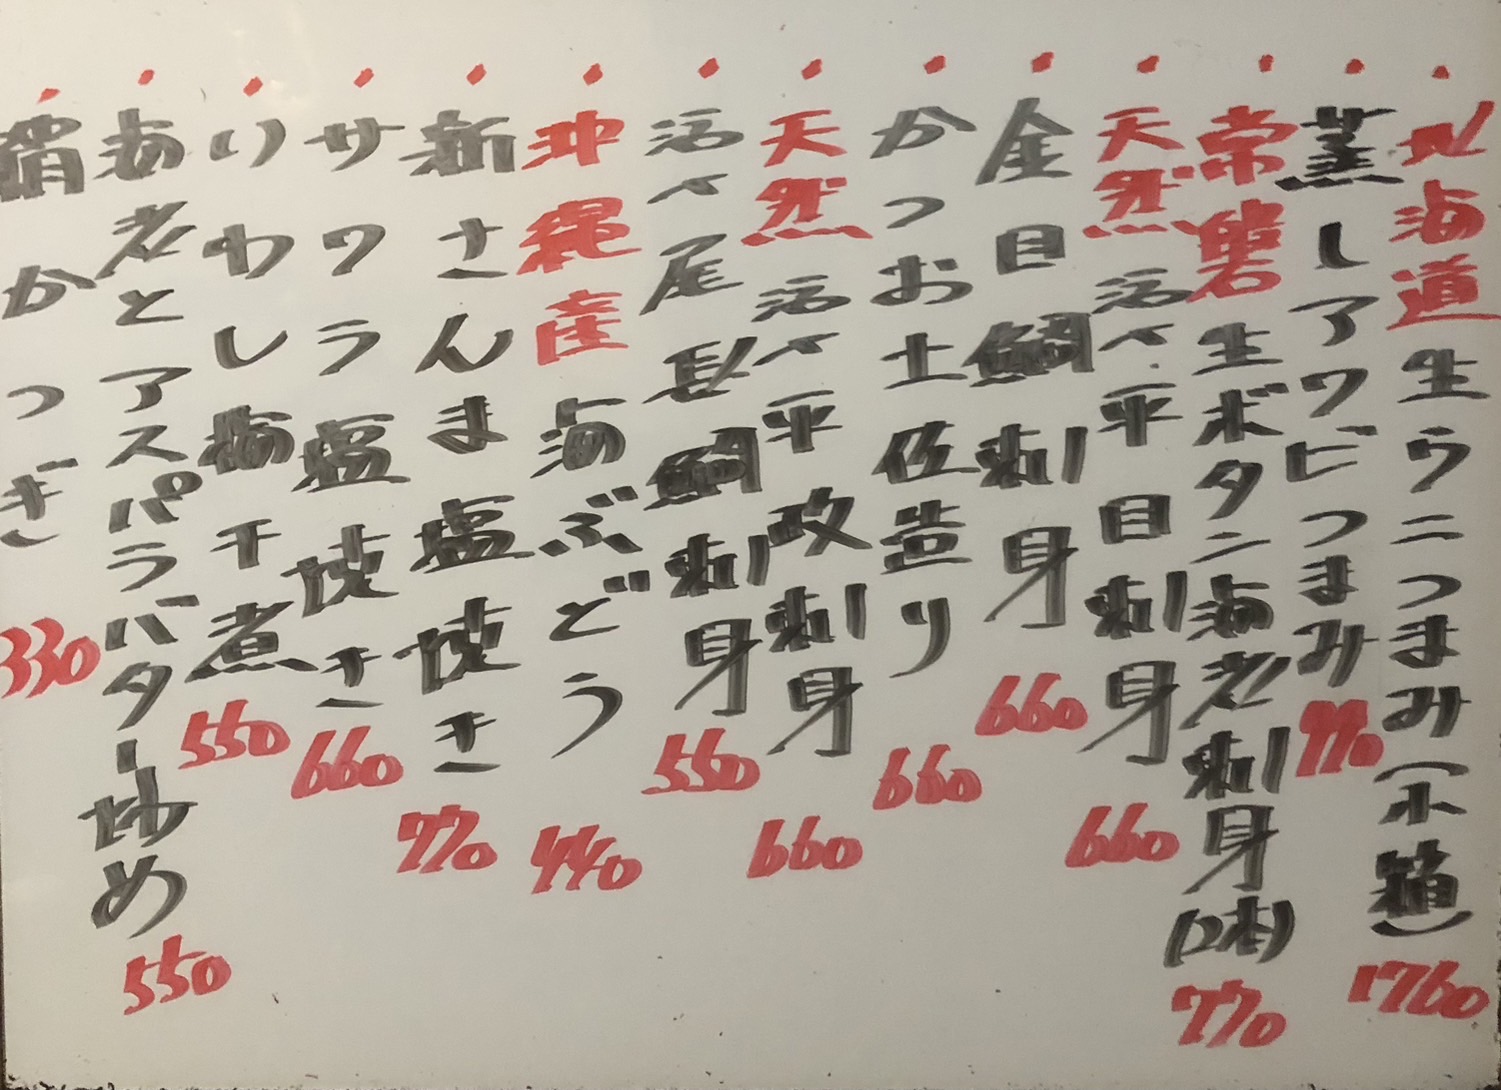 北海道 生ウニつまみ(木箱) 1760
蒸しアワビつまみ 990
常磐 生ボタン海老刺身(2本) 770
天然 活〆平目刺身 660
金目鯛刺身 660
かつお土佐造り 660
天然 活〆平政刺身 660
活〆尾長鯛刺身 550
沖縄産 海ぶどう 440
新さんま塩焼き 770
サワラ塩焼き 660
いわし梅干煮 550
海老とアスパラバター炒め 550
絹かつぎ 330